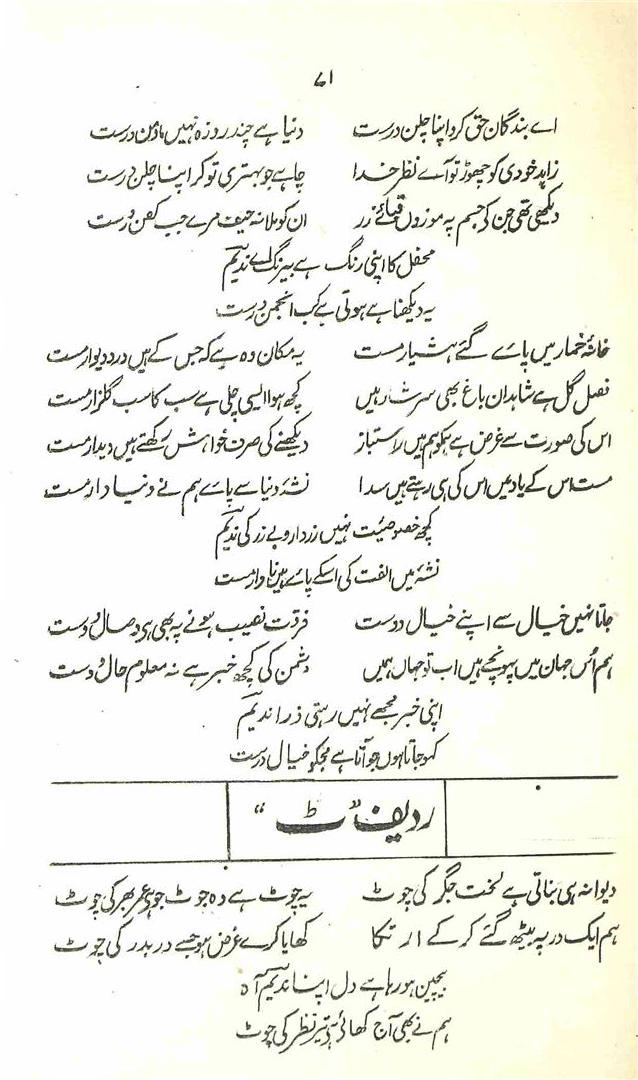 ۷۱
اے بندگان حق کرو اپنا چلن درست دنیا ہے چند روزہ نہیں درست
زاہد خودی کو چھوڑ تو آے نظر خدا چاہے جو بہتری تو کر اپنا چلن درست
دیکھی تھی جن کی جسم پہ موزوں قبائے زر ان کو ملا نہ حیف مرے جب کفن درست
محفل کا اپنی رنگ ہے بیرنگ اے ندیمؔ
یہ دیکھنا ہے ہوتی ہے کب انجمن درست
خانۂ خمار میں پاے گئے ہشیار مست یہ مکان وہ ہے کہ جس کے ہیں در و دیوار مست
فصل گل ہے شاہدان باغ بھی سرشار ہیں کچھ ہوا ایسی چلی ہے سب کا سب گلزار مست
اس کی صورت سے غرض ہے ہمکو ہم ہیں راستباز دیکھنے کی صرف خواہش رکھتے ہیں دیدار مست
مست اس کے یاد میں اس کی ہی رہتے ہیں سدا نشۂ دنیا سے پاے ہم نے دنیا دار مست
کچھ خصوصیت نہیں زردار و بے زر کی ندیمؔ
نشہ میں الفت کی اسکے پاے ہیں نادار مست
جاتا نہیں خیال سے اپنے خیال دوست فرقت نصیب ہونے پہ بھی ہی وصال دوست
ہم اُس جہان میں پہونچے ہیں اب تو جہاں ہمیں دشمن کی کچھ خبر ہے نہ معلوم حال دوست
اپنی خبر مجھے نہیں رہتی ذرا ندیمؔ
کھو جاتا ہوں جو آتا ہے مجکو خیال دوست
ردیف ”ٹ“
دیوانہ ہی بناتی ہے لخت جگر کی چوٹ یہ چوٹ ہے وہ چوٹ جو ہی عمر بھر کی چوٹ
ہم ایک در پہ بیٹھ گئے کر کے ارتکا کھایا کرے غرض ہو جسے در بدر کی چوٹ
بیچین ہو رہا ہے دل اپنا ندیمؔ آہ
ہم نے بھی آج کھائی ہی تیر نظر کی چوٹ